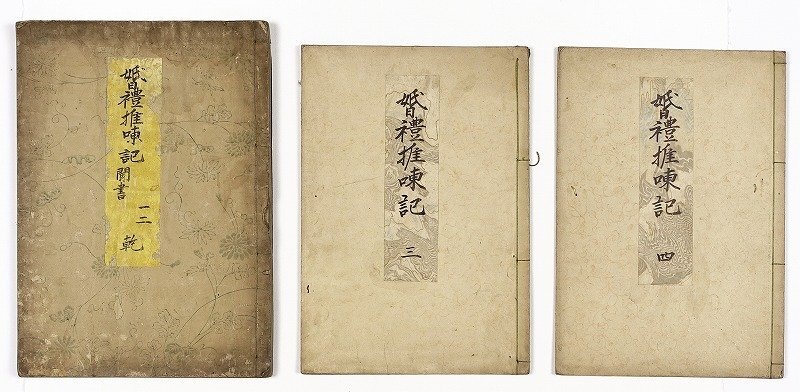 婚禮推㖨記聞書
一二
乾
婚禮推㖨記
三
婚禮推㖨記
四